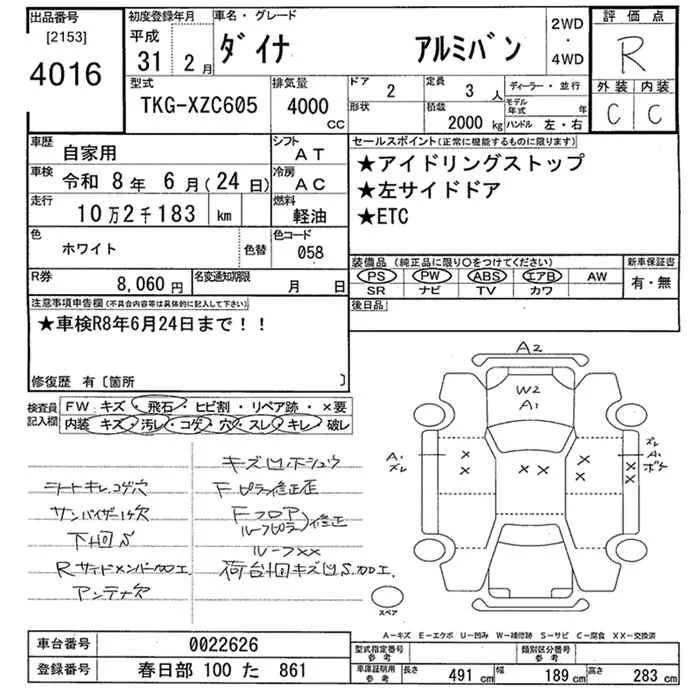 出品番号 初度登録年月 車名・グレード 2WD 評価点
[2153] 平成 ダイナ アルミバン ・
4016 31年 2月 4WD R
型式 排気量 ドア 定員 ディーラー・並行 外装 内装
TKG-XZC605 4000 CC 2 3人 モデル年式 年 C C
形状 積載 2000kg ハンドル 左・右
車歴 自家用 シフト AT セールスポイント(正常に機能するものに限ります)
車検 令和 8年 6月(24日) 冷房 AC ★アイドリングストップ
★左サイドドア
走行 10万2千183 km 燃料 軽油 ★ETC
色 ホワイト 色替 色コード 058
装備品(純正品に限り○をつけてください) 新車保証書
R券 8,060円 名変通知期限 月 日 PS PW ABS エアB AW 有・無
SR ナビ TV カワ
注意事項申告欄(不具合内容等は具体的に記入して下さい) 後日品
★車検R8年6月24日まで!!
修復歴 有〔箇所 〕
検査員記入欄 FW:キズ・飛石・ヒビ割・リペア跡・×要
内装 キズ・汚レ・コゲ・穴・スレ・キレ・破レ
キズ凹ホシュウ
シートキレ.コゲ穴 Fピラー修正歪
サンバイザー1ヶ欠 Fフロア
ルーフピラー)修正
下回S ルーフXX
Rサイドメンバー加工 荷台廻キズ凹S.加工.
アンテナ欠
A2
W2
A1
A1 スレ × × × × × × × スレ A1 ボケ
スペア
A-キズ E-エクボ U-凹み W-補修跡 S-サビ C-腐食 XX-交換済
車台番号 0022626 型式指定番号 参考 類別区分番号 参考
登録番号 春日部 100 た 861 車庫証明用 参考 長さ 491cm 幅 189cm 高さ 283cm